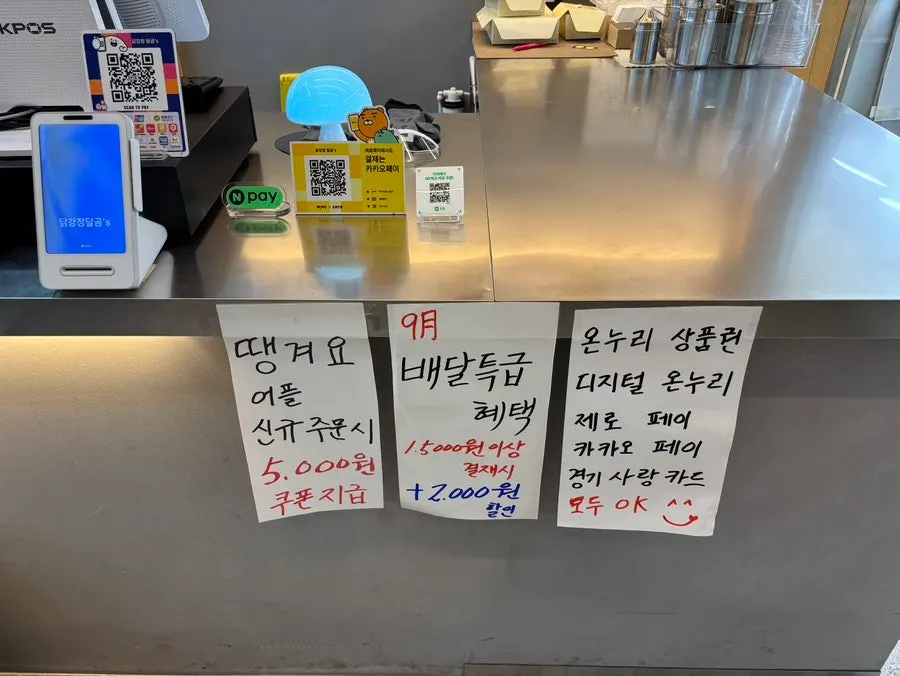 KPOS
닭강정 달곰's
SCAN TO PAY
닭강정달곰's
N pay
닭강정 달곰's
결제는
카카오페이
땡겨요
어플
신규 주문시
5.000원
쿠폰지급
9月
배달특급
혜택
1.5000원이상
결재시
+2.000원
할인
온누리 상품권
디지털 온누리
제로 페이
카카오 페이
경기 사랑 카드
모두 OK